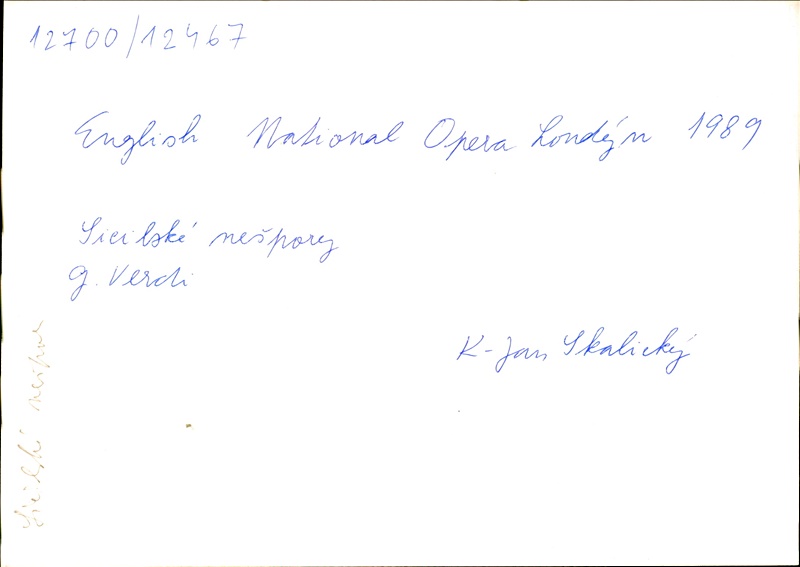 12700/12467
English National Opera Londýn 1989
Sicilské nešpory
G. Verdi
K - Jan Skalický
Sicilské nešpor